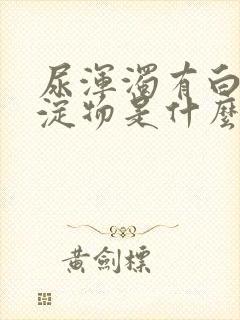 尿渾濁有白
淀物是什麼
黃劍標